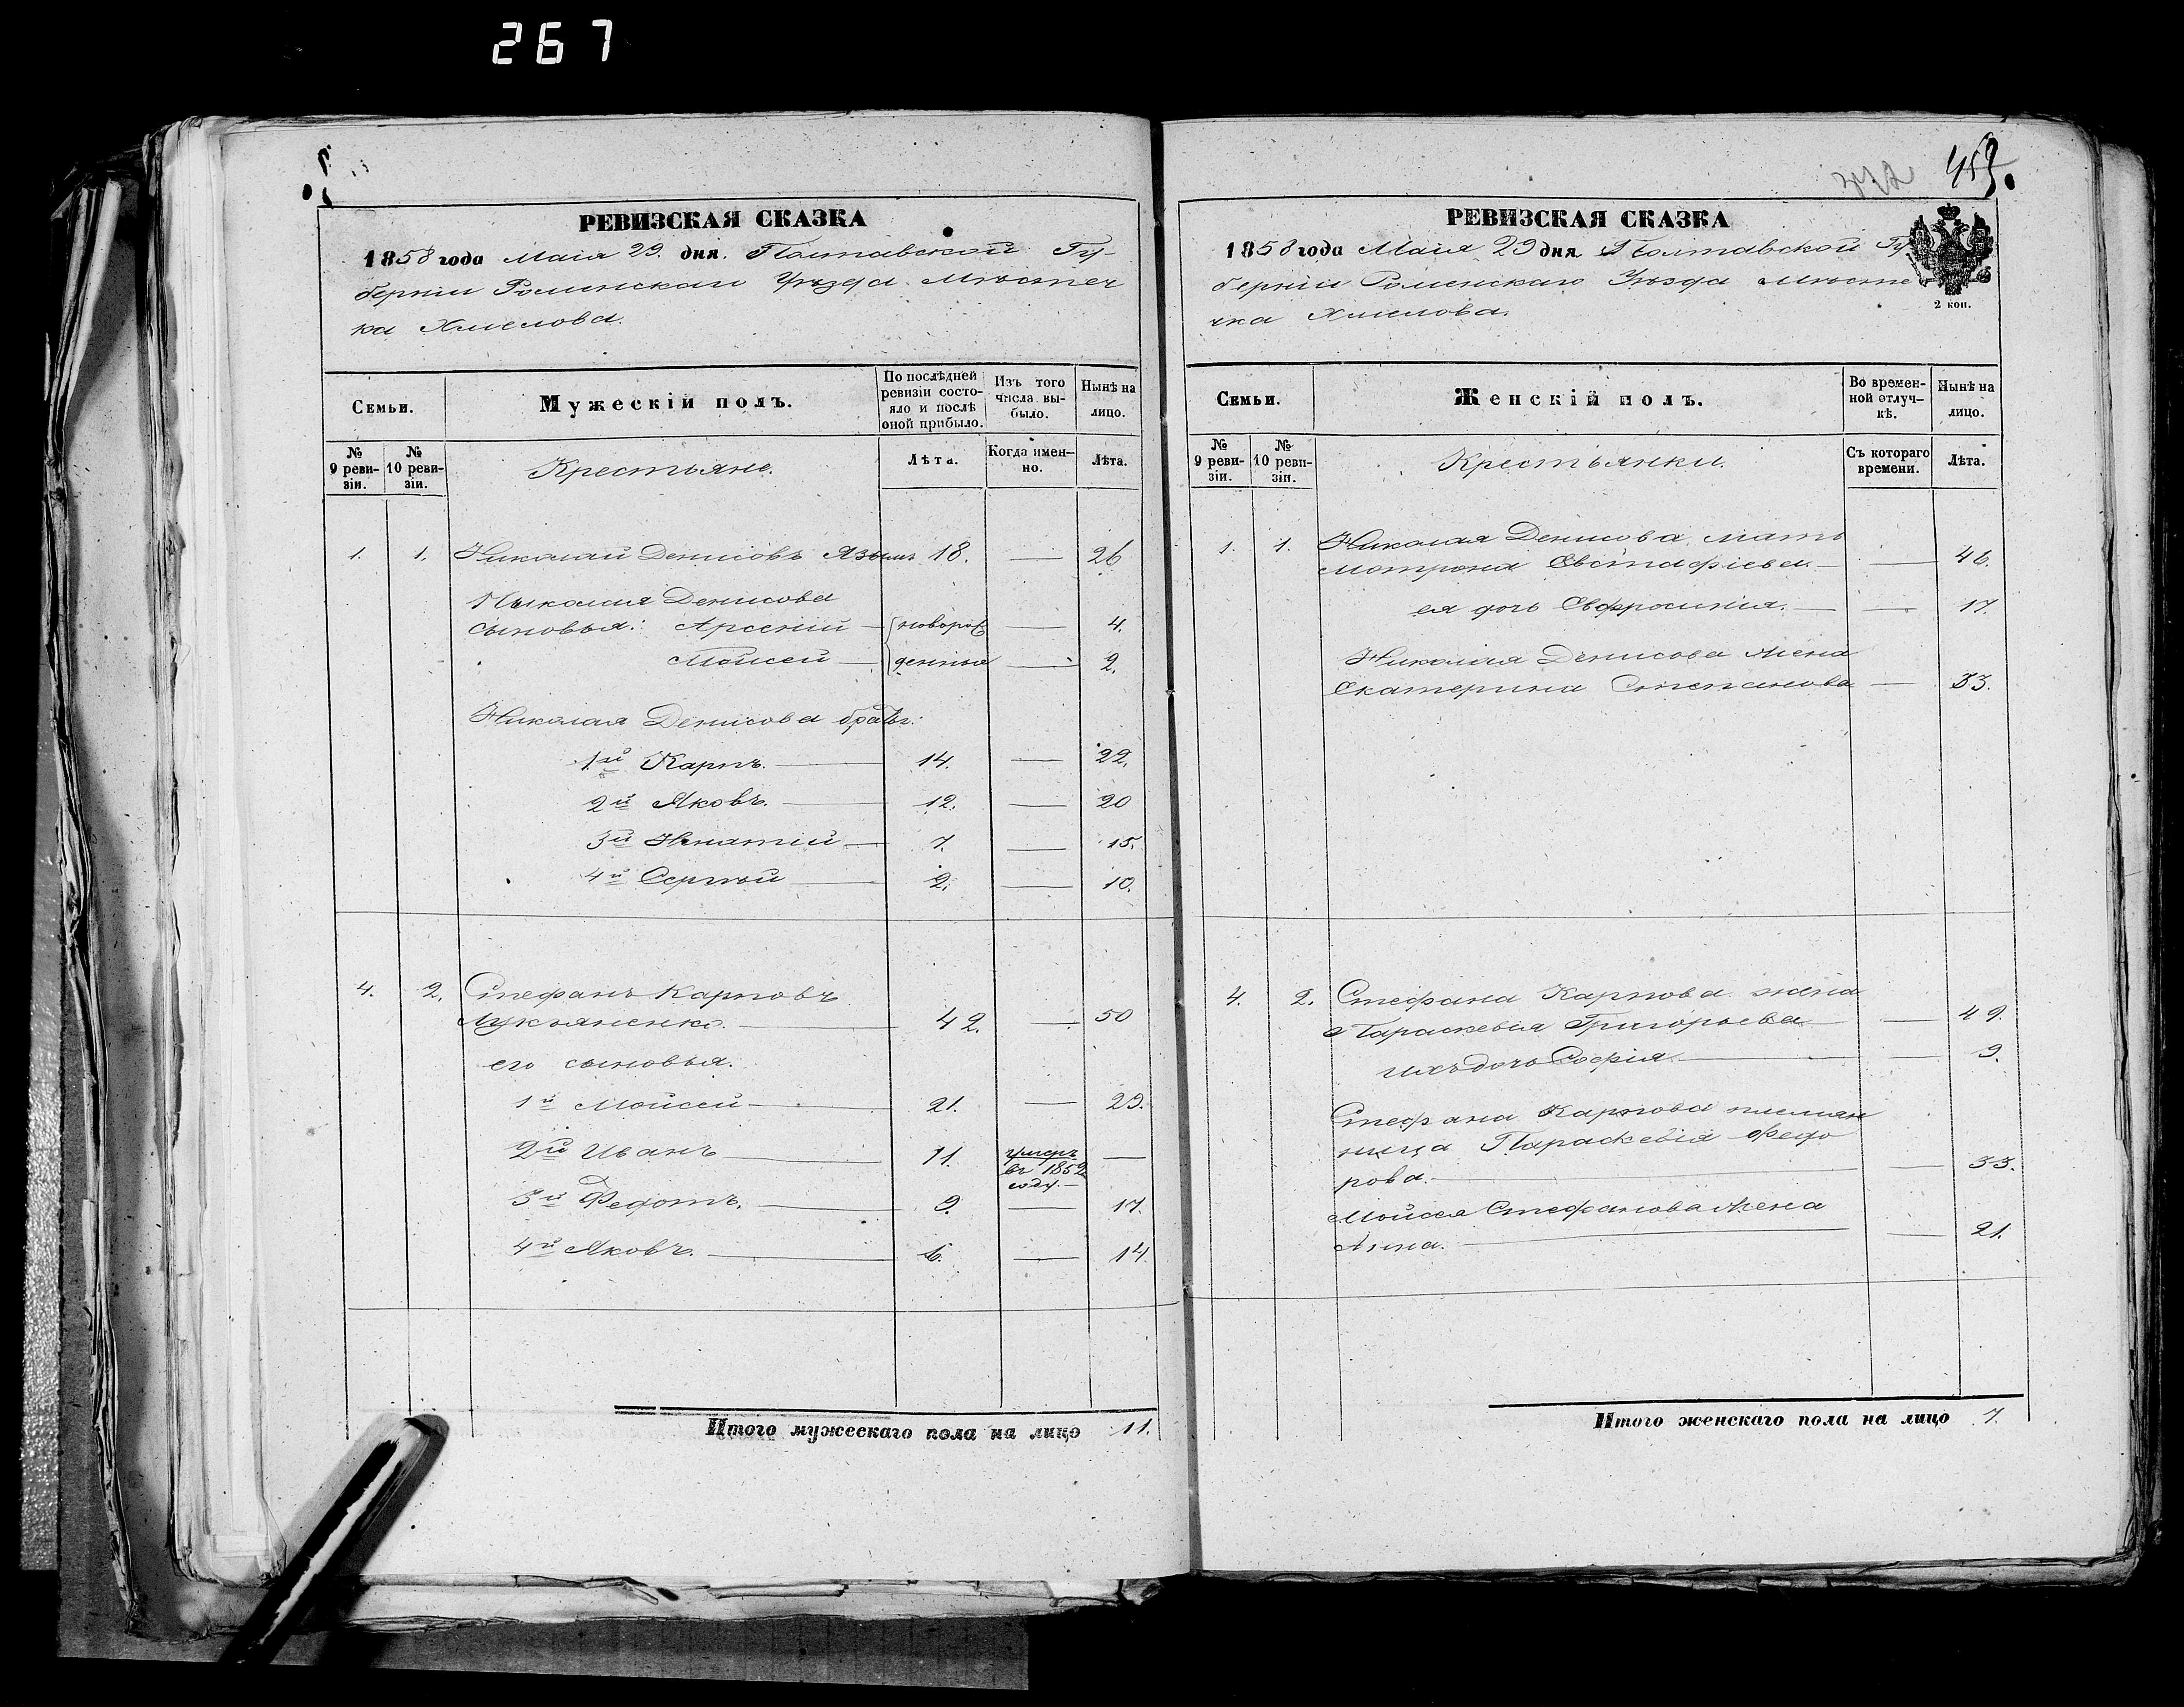 267
РЕВИЗСКАЯ СКАЗКА
1858 года Маія 29. дня. Полтавской Гу-
берніи Роменскаго Уѣзда Мѣстеч
ка Хмелова.
Семьи.
Мужескій полъ.
По послѣдней ревизіи состо-яло и послѣ оной прибыло.
Изъ того числа вы-было.
Нынѣ на лицо.
№ 9 реви-зіи.
№ 10 реви-зіи.
Крестьяне.
Лѣта.
Когда имен-но.
Лѣта.
1. 1. Николай Денисовъ 18. — 26
Николая Денисова
сыновья: Арсеній — новорож — 4.
Моисей — денные — 2.
Николая Денисова братья:
1й Карпъ. — 14. — 22.
2й Яковъ. — 12. — 20
3й Игнатій — 7. — 15.
4й Сергѣй — 2. — 10.
4. 2. Стефанъ Карповъ
Лукьяненко. — 42. — 50
его сыновья:
1й Мойсей — 21. — 29.
2й Иванъ — 11. умеръ въ 1852 году. —
3й Федотъ. — 9. — 17.
4й Яковъ. — 6. — 14.
Итого мужескаго пола на лицо 11.
РЕВИЗСКАЯ СКАЗКА
1858 года Маія 29 дня Полтавской Гу
берніи Роменскаго Уѣзда Мѣсте
чка Хмелова.
2 коп.
Семьи.
Женскій полъ.
Во времен-ной отлуч-кѣ.
Нынѣ на лицо.
№ 9 реви-зіи.
№ 10 реви-зіи.
Крестьянки.
Съ котораго времени.
Лѣта.
1. 1. Николая Денисова мать
Мотрона Евстафіева — — 46.
ея дочь Евфросинія. — — 17.
Николая Денисова жена
Екатерина Степанова — 33.
4. 2. Стефана Карпова жена
Параскевія Григорьева — — 49.
ихъ дочь Софія. — — 9.
Стефана Карпова племян
ница Параскевія Федо
рова. — — 33.
Мойсея Стефанова жена
Анна. — — 21.
Итого женскаго пола на лицо 7.